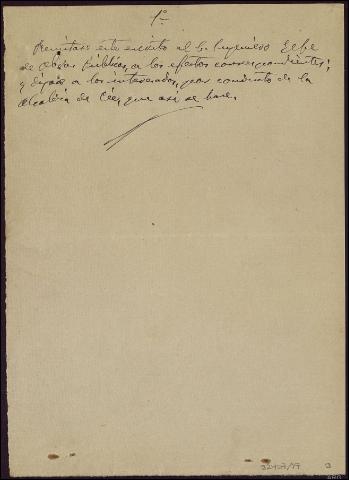 1º
Remítase este escrito al Sr. Ingeniero Gefe
de Obras Públicas, a los efectos correspondientes;
y dígase a los interesados, por conducto de la
Alcaldía de Cée, que así se hace.
3